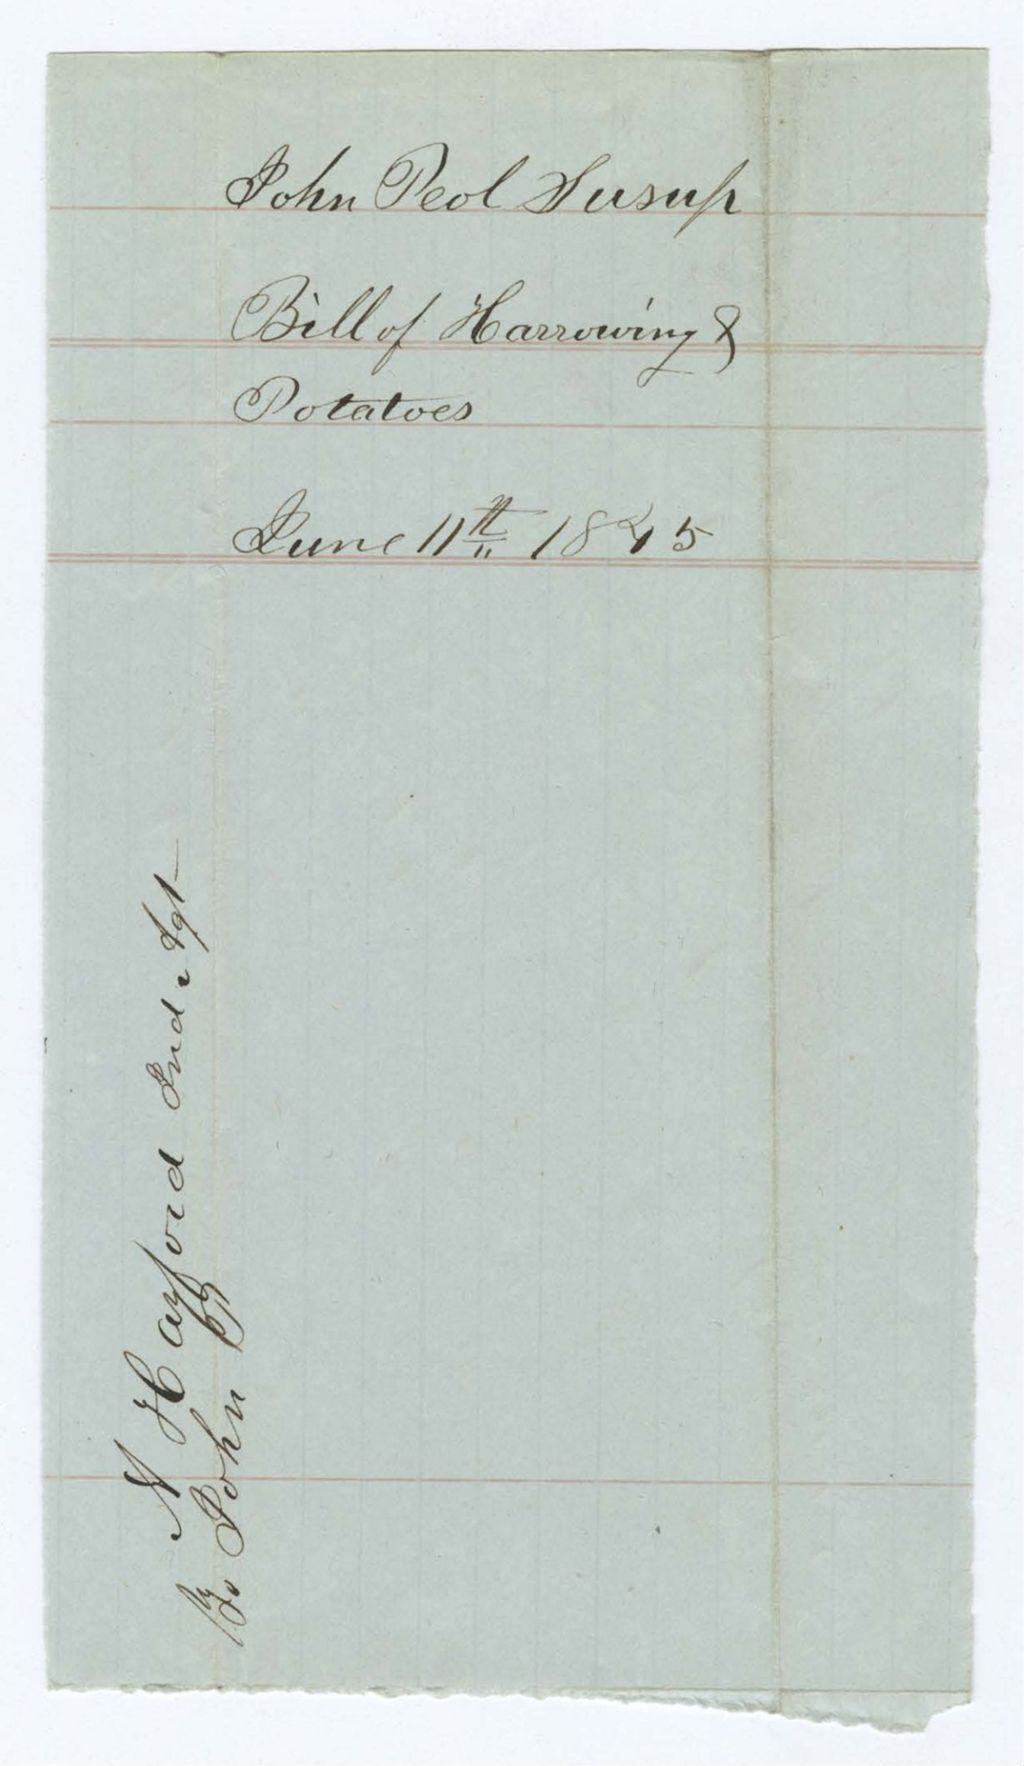 John Peol Susup
Bill of Harrowing &
Potatoes
June 11th 1845
N Hayford Ind. Agt
To John